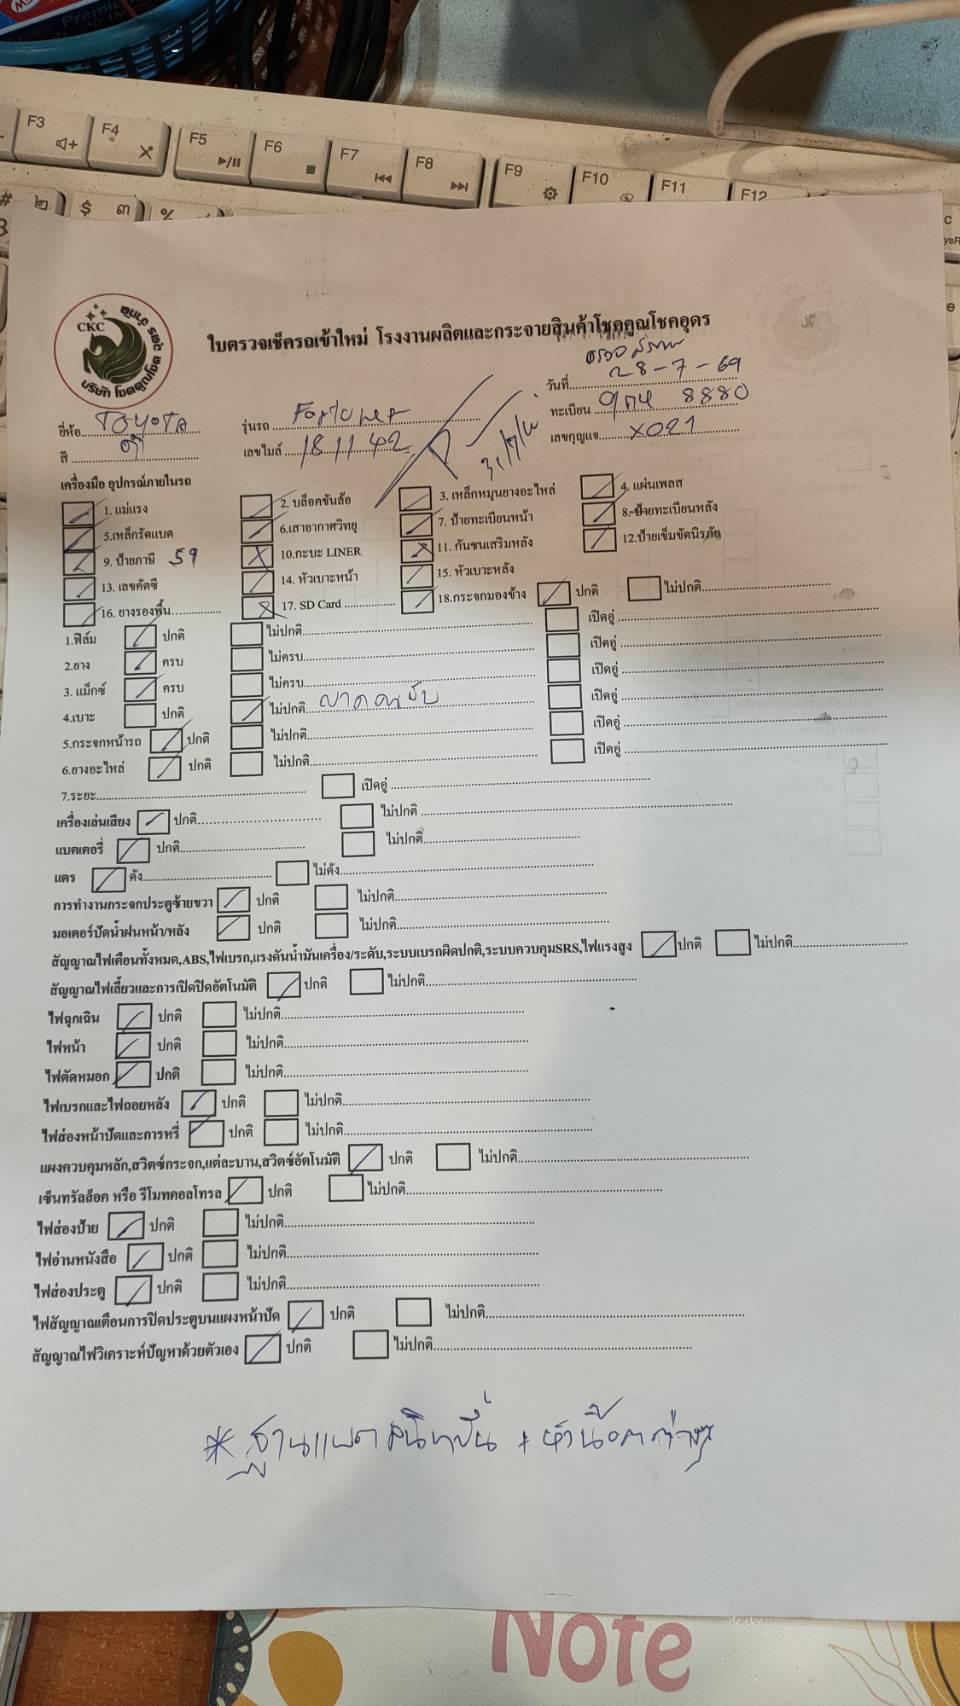 F3 F4 F5 F6 F7 F8 F9 F10 F11 F12
CKC
บริษัท โชคคูณโชค อุดร จำกัด
ใบตรวจเช็ครถเข้าใหม่ โรงงานผลิตและกระจายสินค้าโชคคูณโชคอุดร
วันที่ 28-7-69
ยี่ห้อ TOYOTA รุ่นรถ Fortuner ทะเบียน 8880
สี ดำ เลขไมล์ 181142 เลขกุญแจ X021
เครื่องมือ อุปกรณ์ภายในรถ
1. แม่แรง 2. บล็อคขันล้อ 3. เหล็กหมุนยางอะไหล่ 4. แผ่นเพลส
5.เหล็กรัดแบต 6.เสาอากาศวิทยุ 7. ป้ายทะเบียนหน้า 8.ป้ายทะเบียนหลัง
9. ป้ายภาษี 59 10.กะบะ LINER 11. กันชนเสริมหลัง 12.ป้ายเข็มขัดนิรภัย
13. เลขคัดซี 14. หัวเบาะหน้า 15. หัวเบาะหลัง
16. ยางรองพื้น 17. SD Card 18.กระจกมองข้าง ปกติ ไม่ปกติ
1.ฟิล์ม ปกติ ไม่ปกติ เปิดอู่
2.ยาง ครบ ไม่ครบ เปิดอู่
3. แม็กซ์ ครบ ไม่ครบ เปิดอู่
4.เบาะ ปกติ ไม่ปกติ ขาดคนขับ เปิดอู่
5.กระจกหน้ารถ ปกติ ไม่ปกติ เปิดอู่
6.ยางอะไหล่ ปกติ ไม่ปกติ เปิดอู่
7.ระยะ เปิดอู่
เครื่องเล่นเสียง ปกติ ไม่ปกติ
แบตเตอรี่ ปกติ ไม่ปกติ
แตร ดัง ไม่ดัง
การทำงานกระจกประตูซ้ายขวา ปกติ ไม่ปกติ
มอเตอร์ปัดน้ำฝนหน้า/หลัง ปกติ ไม่ปกติ
สัญญาณไฟเตือนทั้งหมด,ABS,ไฟเบรก,แรงดันน้ำมันเครื่อง/ระดับ,ระบบเบรกผิดปกติ,ระบบควบคุมSRS,ไฟแรงสูง ปกติ ไม่ปกติ
สัญญาณไฟเลี้ยวและการเปิดปิดอัตโนมัติ ปกติ ไม่ปกติ
ไฟฉุกเฉิน ปกติ ไม่ปกติ
ไฟหน้า ปกติ ไม่ปกติ
ไฟตัดหมอก ปกติ ไม่ปกติ
ไฟเบรกและไฟถอยหลัง ปกติ ไม่ปกติ
ไฟส่องหน้าปัดและการหรี่ ปกติ ไม่ปกติ
แผงควบคุมหลัก,สวิตซ์กระจก,แต่ละบาน,สวิตซ์อัตโนมัติ ปกติ ไม่ปกติ
เซ็นทรัลล็อค หรือ รีโมทคอลโทรล ปกติ ไม่ปกติ
ไฟส่องป้าย ปกติ ไม่ปกติ
ไฟอ่านหนังสือ ปกติ ไม่ปกติ
ไฟส่องประตู ปกติ ไม่ปกติ
ไฟสัญญาณเตือนการปิดประตูบนแผงหน้าปัด ปกติ ไม่ปกติ
สัญญาณไฟวิเคราะห์ปัญหาด้วยตัวเอง ปกติ ไม่ปกติ
* ฐานแบตสนิมขึ้น + หัวน็อต
Note